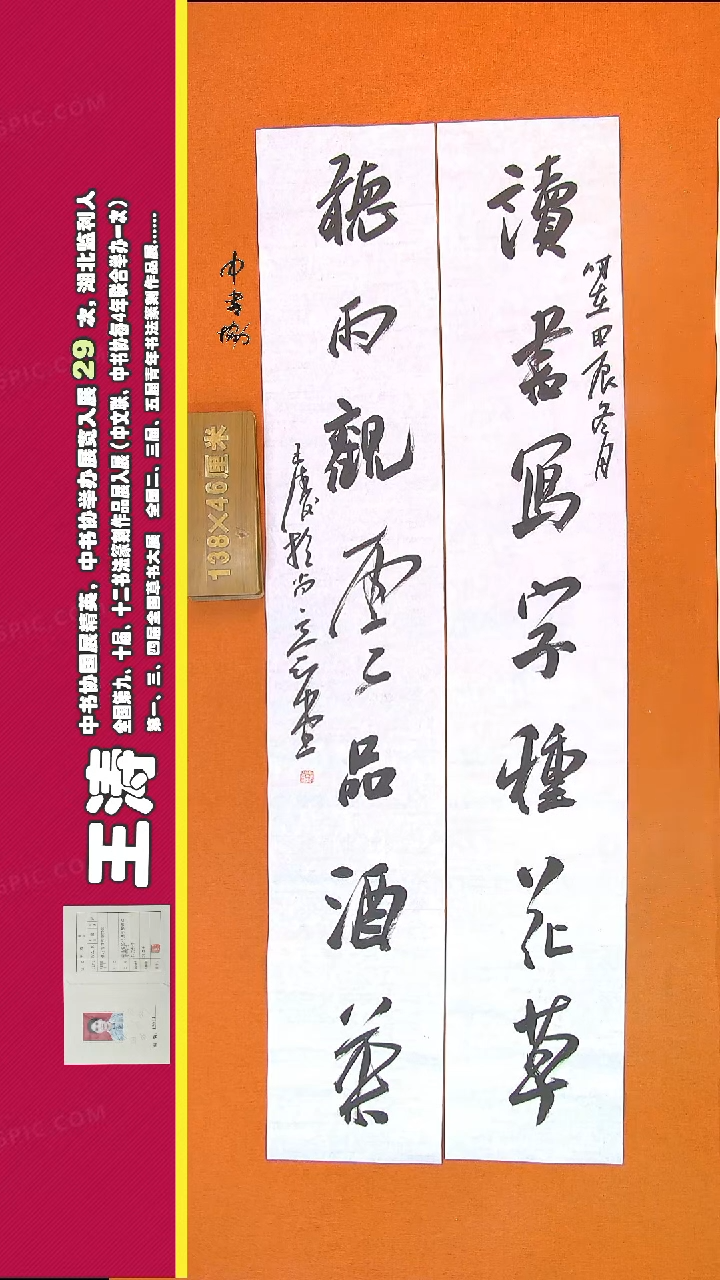 讀書寫字種花草
時在甲辰冬月
聽雨觀雲品酒茶
王涛於
中書協
138×46厘米
王涛
中书协国展精英，中书协举办展览入展29次，湖北监利人
全国第九、十届、十二书法篆刻作品展入展（中文联、中书协每4年联合举办一次）
第一、三、四届全国草书大展 全国二、三届、五届青年书法篆刻作品展……